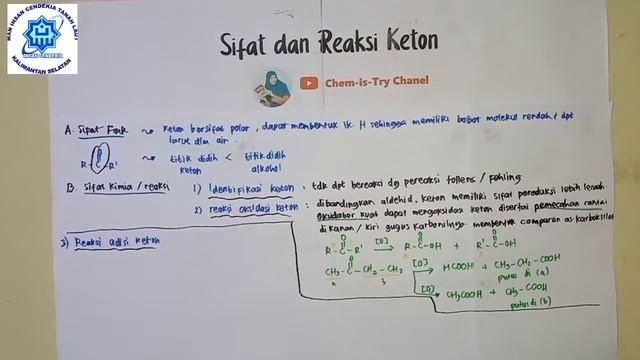 MAN INSAN CENDEKIA TANAH LAUT
INSAN CENDEKIA
KALIMANTAN SELATAN
Sifat dan Reaksi Keton
Chem-is-Try Chanel
A. Sifat Fisik ~ keton bersifat polar, dapat membentuk ik. H sehingga memiliki bobot molekul rendah & dpt
larut dlm air.
R-C-R'
O
~ titik didih < titik didih
keton alkohol
B. Sifat kimia / reaksi 1) Identifikasi keton : tdk dpt bereaksi dg pereaksi tollens / fehling
2) reaksi oksidasi keton : dibandingkan aldehid, keton memiliki sifat pereduksi lebih lemah
oksidator kuat dapat mengoksidasi keton disertai pemecahan rantai
di kanan / kiri gugus karbonilnya membentuk campuran as. karboksilat
3) Reaksi adisi keton
O O O
R-C-R' [O] R-C-OH + R'-C-OH
O
CH3-C-CH2-CH3 [O] HCOOH + CH3-CH2-COOH
a b putus di (a)
[O] CH3COOH + CH3-COOH
putus di (b)